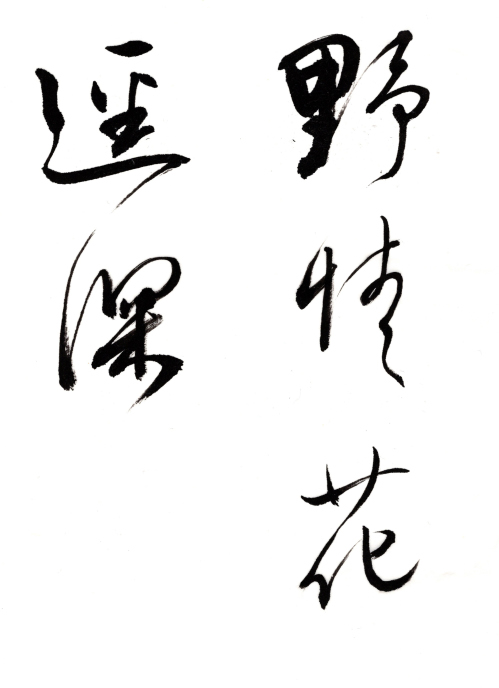 野情花
逕深